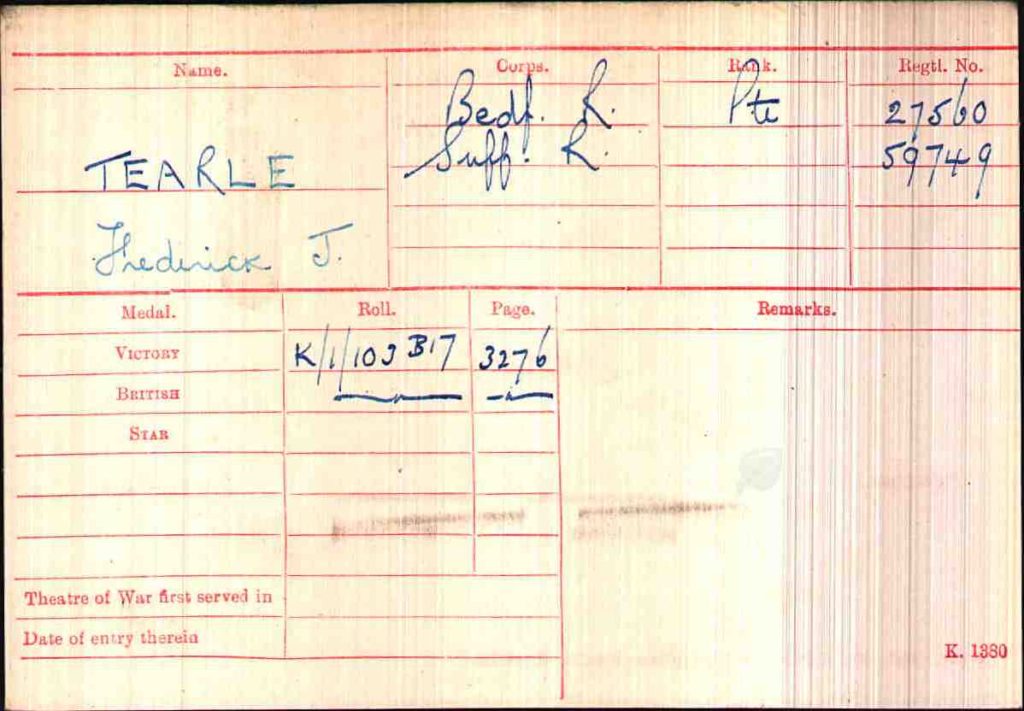 Name. Corps. Rank. Regtl. No.
Bedf. R. Pte 27560
TEARLE Suff. R. 59749
Frederick J.
Medal. Roll. Page. Remarks.
VICTORY K/1/103 B17 3276
BRITISH
STAR
Theatre of War first served in
Date of entry therein
K. 1380